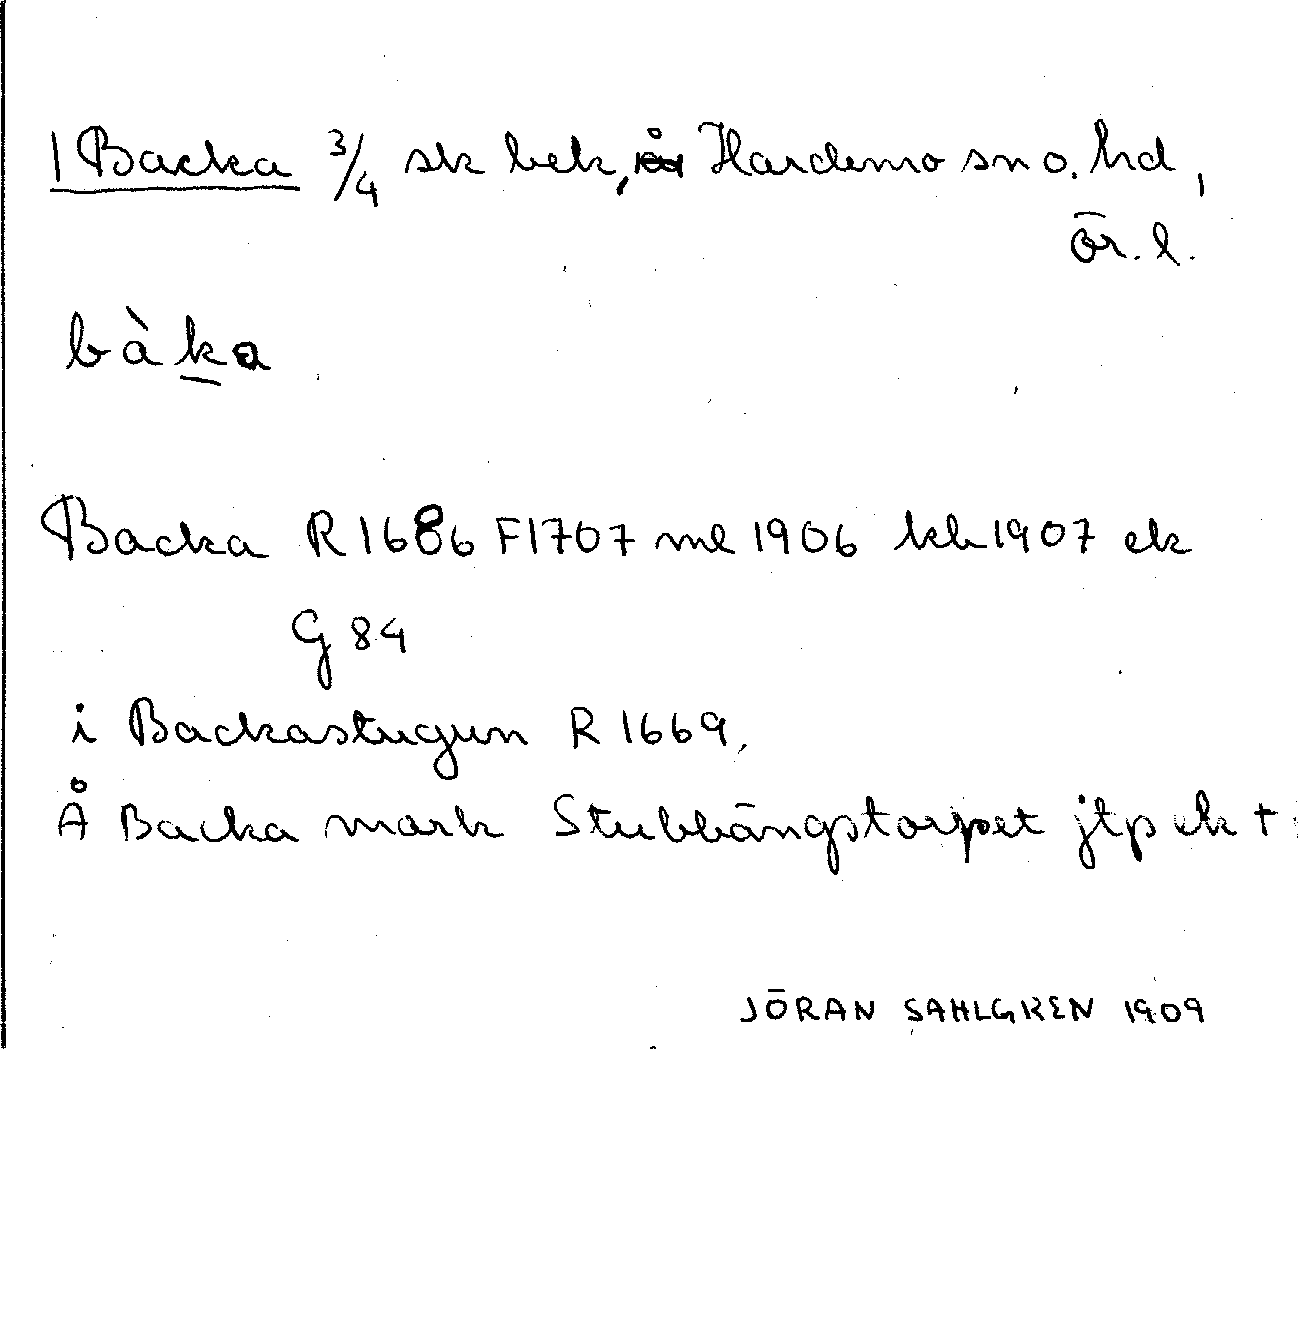 1 Backa 3/4 sk bek, Hardemo sn o. hd,
ör. l.
bàka
Backa R 1686 F1707 ml 1906 kb 1907 ek
G 84
i Backastugun R 1669,
Å Backa mark Stubbängstorpet jtp ek †
JÖRAN SAHLGREN 1909